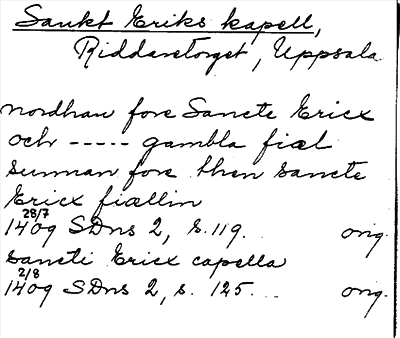 Sankt Eriks kapell,
Riddaretorget, Uppsala
nordhan fore Sancte Ericx
och ----- gambla fiæl
sunnan fore then sancte
Ericx fiællin
28/7
1409 SDns 2, s. 119. orig.
sancti Ericx capella
2/8
1409 SDns 2, s. 125... orig.